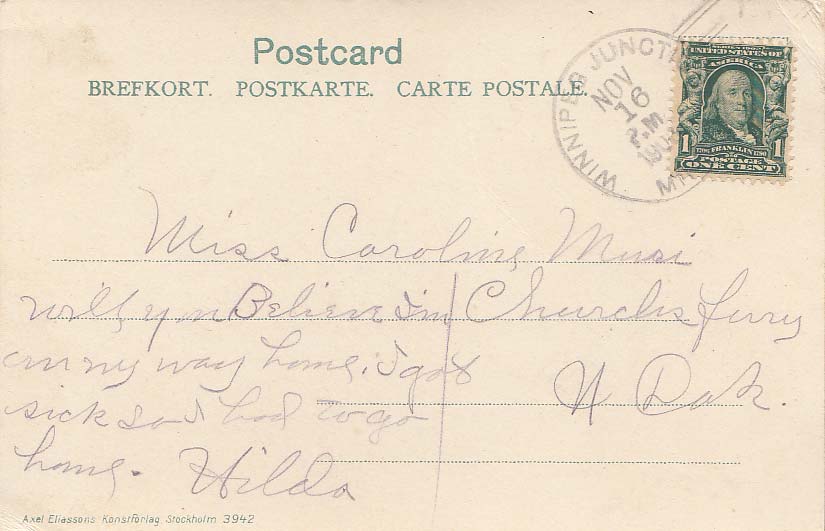 Postcard
BREFKORT. POSTKARTE. CARTE POSTALE.
WINNIPEG JUNCTI
NOV
16
2 M
SERIES 1902
UNITED STATES OF
AMERICA
1 FRANKLIN 1
POSTAGE
ONE CENT
Miss Caroline Musi
will you Believe I'm
on my way home. I got
sick so I had to go
home. Hilda
Churchs ferry
N Dak.
Axel Eliassons Konstförlag, Stockholm 3942